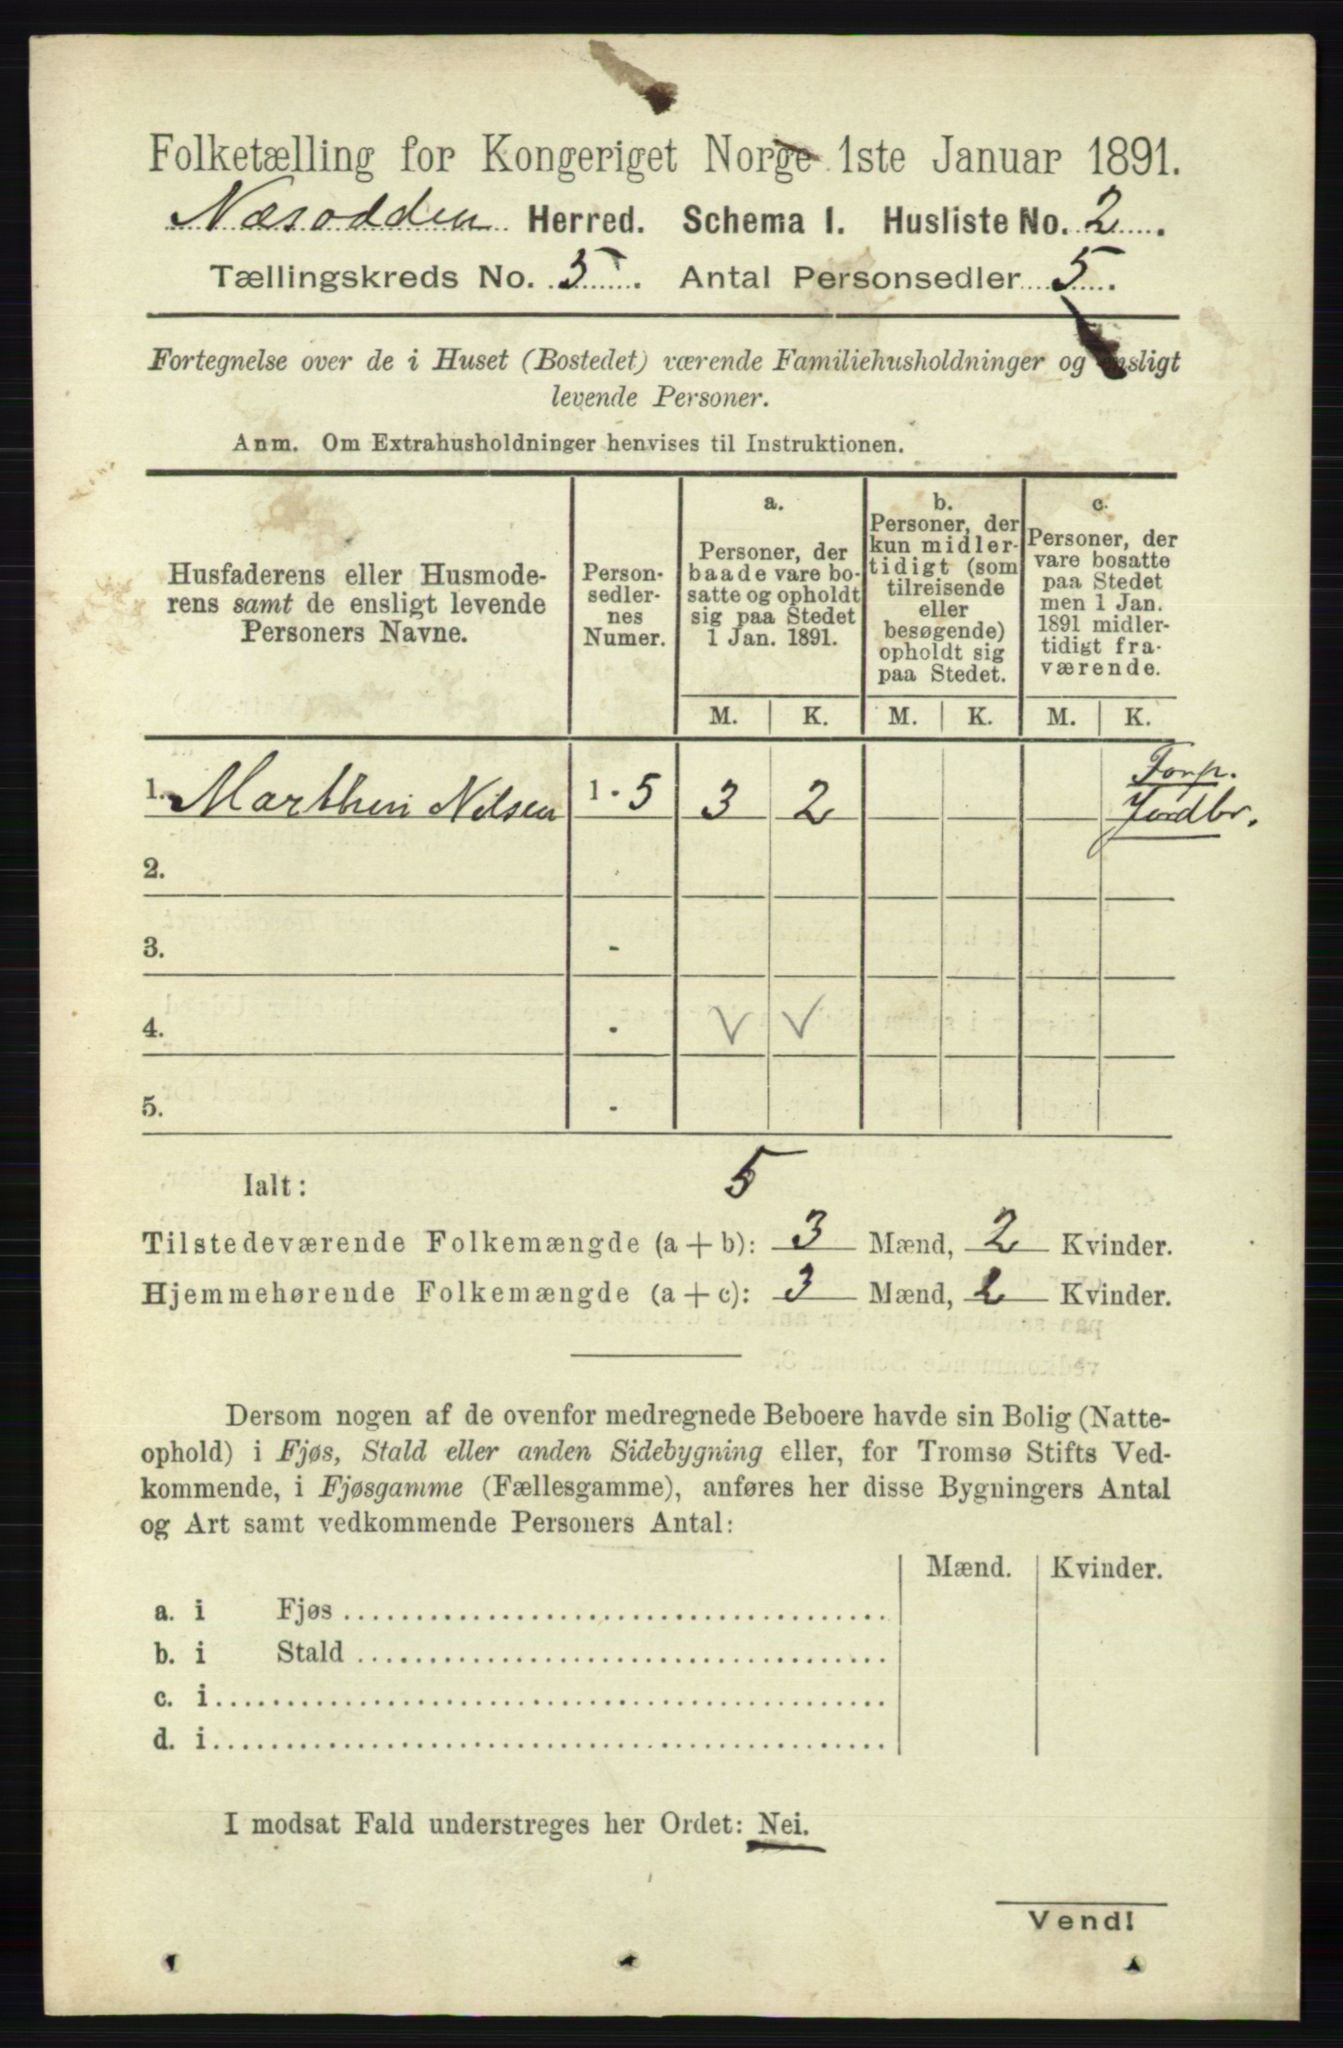 Folketælling for Kongeriget Norge 1ste Januar 1891.
Næsodden Herred. Schema I. Husliste No. 2.
Tællingskreds No. 5. Antal Personsedler 5.
Fortegnelse over de i Huset (Bostedet) værende Familiehusholdninger og ensligt
levende Personer.
Anm. Om Extrahusholdninger henvises til Instruktionen.
Husfaderens eller Husmode-
rens samt de ensligt levende
Personers Navne.
Person-
sedler-
nes
Numer.
a.
Personer, der
baade vare bo-
satte og opholdt
sig paa Stedet
1 Jan. 1891.
b.
Personer, der
kun midler-
tidigt (som
tilreisende
eller
besøgende)
opholdt sig
paa Stedet.
c.
Personer, der
vare bosatte
paa Stedet
men 1 Jan.
1891 midler-
tidigt fra-
værende.
M. K. M. K. M. K.
Torp.
1. Marthin Nilsen 1 - 5 3 2 Jordbr.
2.
3. -
4. -
5. -
Ialt: 5
Tilstedeværende Folkemængde (a + b): 3 Mænd, 2 Kvinder.
Hjemmehørende Folkemængde (a + c): 3 Mænd, 2 Kvinder.
Dersom nogen af de ovenfor medregnede Beboere havde sin Bolig (Natte-
ophold) i Fjøs, Stald eller anden Sidebygning eller, for Tromsø Stifts Ved-
kommende, i Fjøsgamme (Fællesgamme), anføres her disse Bygningers Antal
og Art samt vedkommende Personers Antal:
Mænd. Kvinder.
a. i Fjøs
b. i Stald
c. i
d. i
I modsat Fald understreges her Ordet: Nei.
Vend!